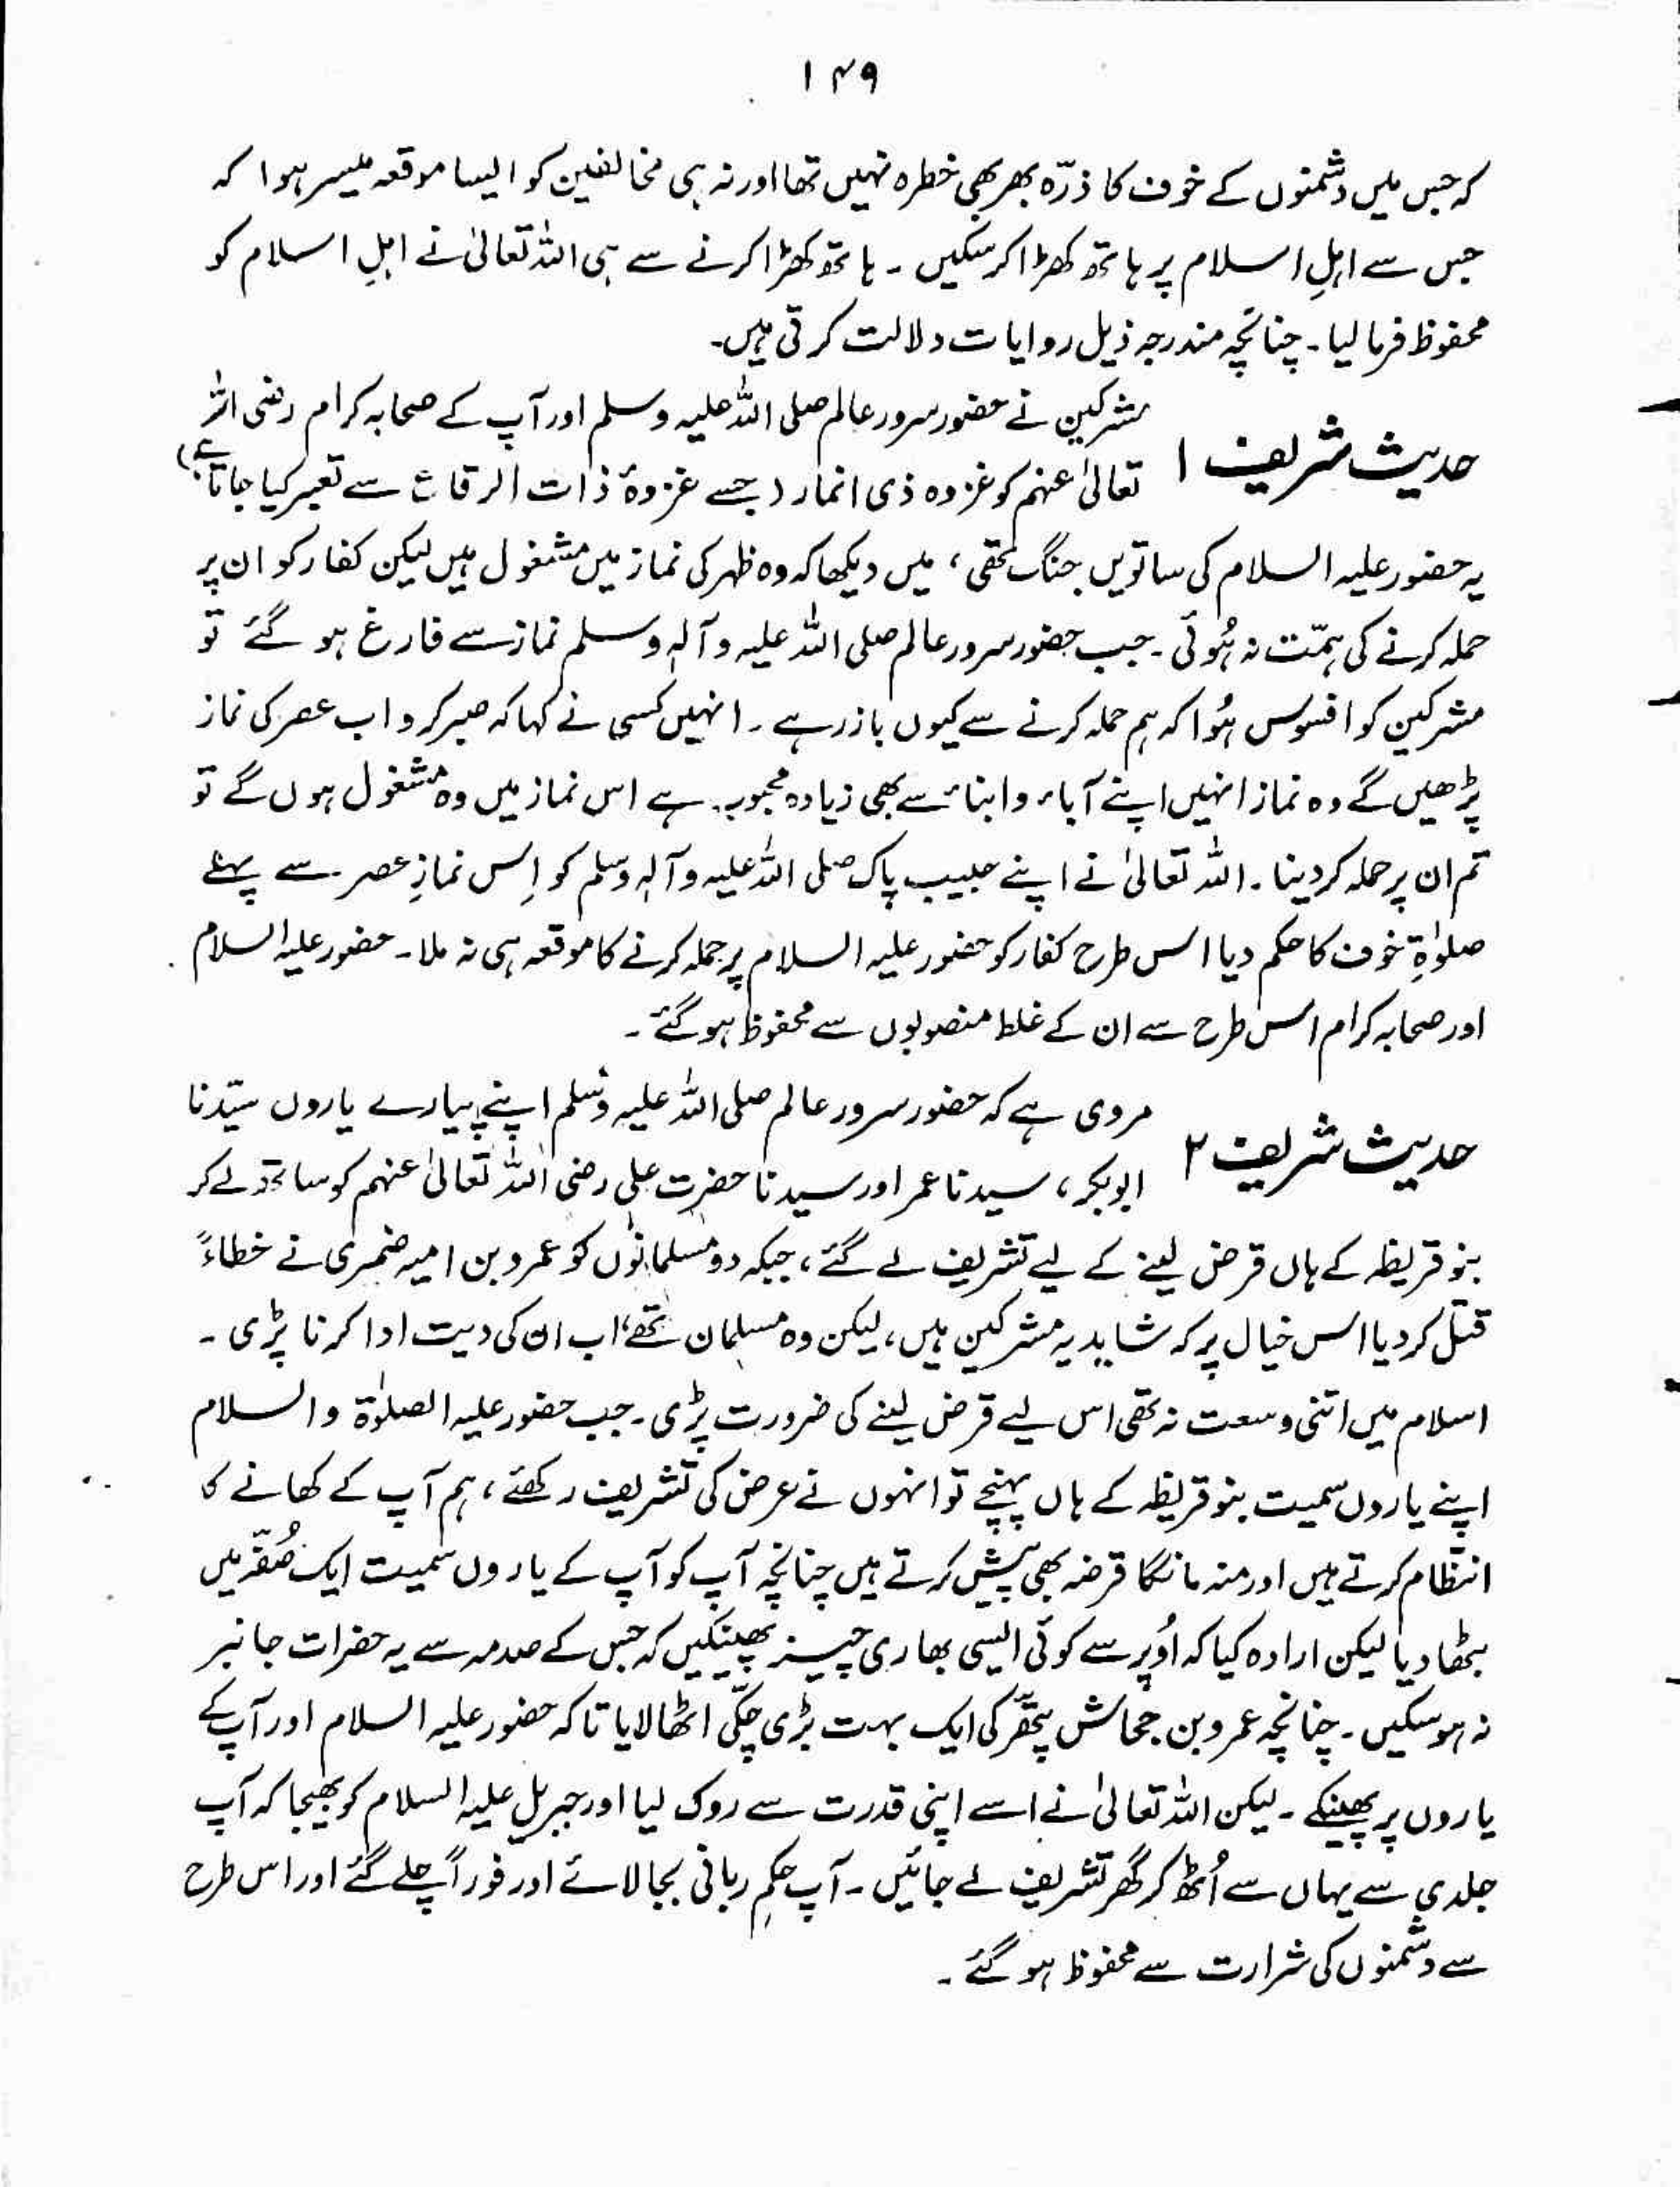 ۱۴۹
کہ جس میں دشمنوں کے خوف کا ذرّہ بھر بھی خطرہ نہیں تھا اور نہ ہی مخالفین کو ایسا موقعہ میسر ہوا کہ
جس سے اہلِ اسلام پر ہاتھ کھڑا کر سکیں ۔ ہاتھ کھڑا کرنے سے ہی اللہ تعالیٰ نے اہلِ اسلام کو
محفوظ فرما لیا ۔ چنانچہ مندرجہ ذیل روایات دلالت کرتی ہیں۔
حدیث شریف ۱
مشرکین نے حضور سرور عالم صلی اللہ علیہ وسلم اور آپ کے صحابہ کرام رضی اللہ
تعالیٰ عنہم کو غزوہ ذی انمار (جسے غزوۂ ذات الرقاع سے تعبیر کیا جاتا ہے)
یہ حضور علیہ السلام کی ساتویں جنگ تھی ، میں دیکھا کہ وہ ظہر کی نماز میں مشغول ہیں لیکن کفار کو ان پر
حملہ کرنے کی ہمّت نہ ہُوئی ۔ جب حضور سرور عالم صلی اللہ علیہ وآلہٖ وسلم نماز سے فارغ ہو گئے تو
مشرکین کو افسوس ہُوا کہ ہم حملہ کرنے سے کیوں باز رہے ۔ انہیں کسی نے کہا کہ صبر کرو اب عصر کی نماز
پڑھیں گے وہ نماز انہیں اپنے آباء و ابناء سے بھی زیادہ محبوب ہے اس نماز میں وہ مشغول ہوں گے تو
تم ان پر حملہ کر دینا ۔ اللہ تعالیٰ نے اپنے حبیب پاک صلی اللہ علیہ وآلہٖ وسلم کو اِس نمازِ عصر سے پہلے
صلوٰۃِ خوف کا حکم دیا اس طرح کفار کو حضور علیہ السلام پر حملہ کرنے کا موقعہ ہی نہ ملا ۔ حضور علیہ السلام
اور صحابہ کرام اس طرح سے ان کے غلط منصوبوں سے محفوظ ہو گئے ۔
حدیث شریف ۲
مروی ہے کہ حضور سرور عالم صلی اللہ علیہ وسلم اپنے پیارے یاروں سیّدنا
ابوبکر ، سیدنا عمر اور سیدنا حضرت علی رضی اللہ تعالیٰ عنہم کو ساتھ لے کر
بنو قریظہ کے ہاں قرض لینے کے لیے تشریف لے گئے ، جبکہ دو مسلمانوں کو عمرو بن امیہ ضمری نے خطاءً
قتل کر دیا اس خیال پر کہ شاید یہ مشرکین ہیں ، لیکن وہ مسلمان تھے ، اب ان کی دیت ادا کرنا پڑی ۔
اسلام میں اتنی وسعت نہ تھی اس لیے قرض لینے کی ضرورت پڑی ۔ جب حضور علیہ الصلوٰۃ والسلام
اپنے یاروں سمیت بنو قریظہ کے ہاں پہنچے تو انہوں نے عرض کی تشریف رکھئے ، ہم آپ کے کھانے کا
انتظام کرتے ہیں اور منہ مانگا قرضہ بھی پیش کرتے ہیں چنانچہ آپ کو آپ کے یاروں سمیت ایک صُفّہ میں
بٹھا دیا لیکن ارادہ کیا کہ اُوپر سے کوئی ایسی بھاری چیز پھینکیں کہ جس کے صدمہ سے یہ حضرات جانبر
نہ ہو سکیں ۔ چنانچہ عمرو بن جحاش پتھّر کی ایک بہت بڑی چکّی اٹھا لایا تاکہ حضور علیہ السلام اور آپ کے
یاروں پر پھینکے ۔ لیکن اللہ تعالیٰ نے اسے اپنی قدرت سے روک لیا اور جبریل علیہ السلام کو بھیجا کہ آپ
جلدی سے یہاں سے اُٹھ کر گھر تشریف لے جائیں ۔ آپ حکمِ ربانی بجا لائے اور فوراً چلے گئے اور اس طرح
سے دشمنوں کی شرارت سے محفوظ ہو گئے ۔